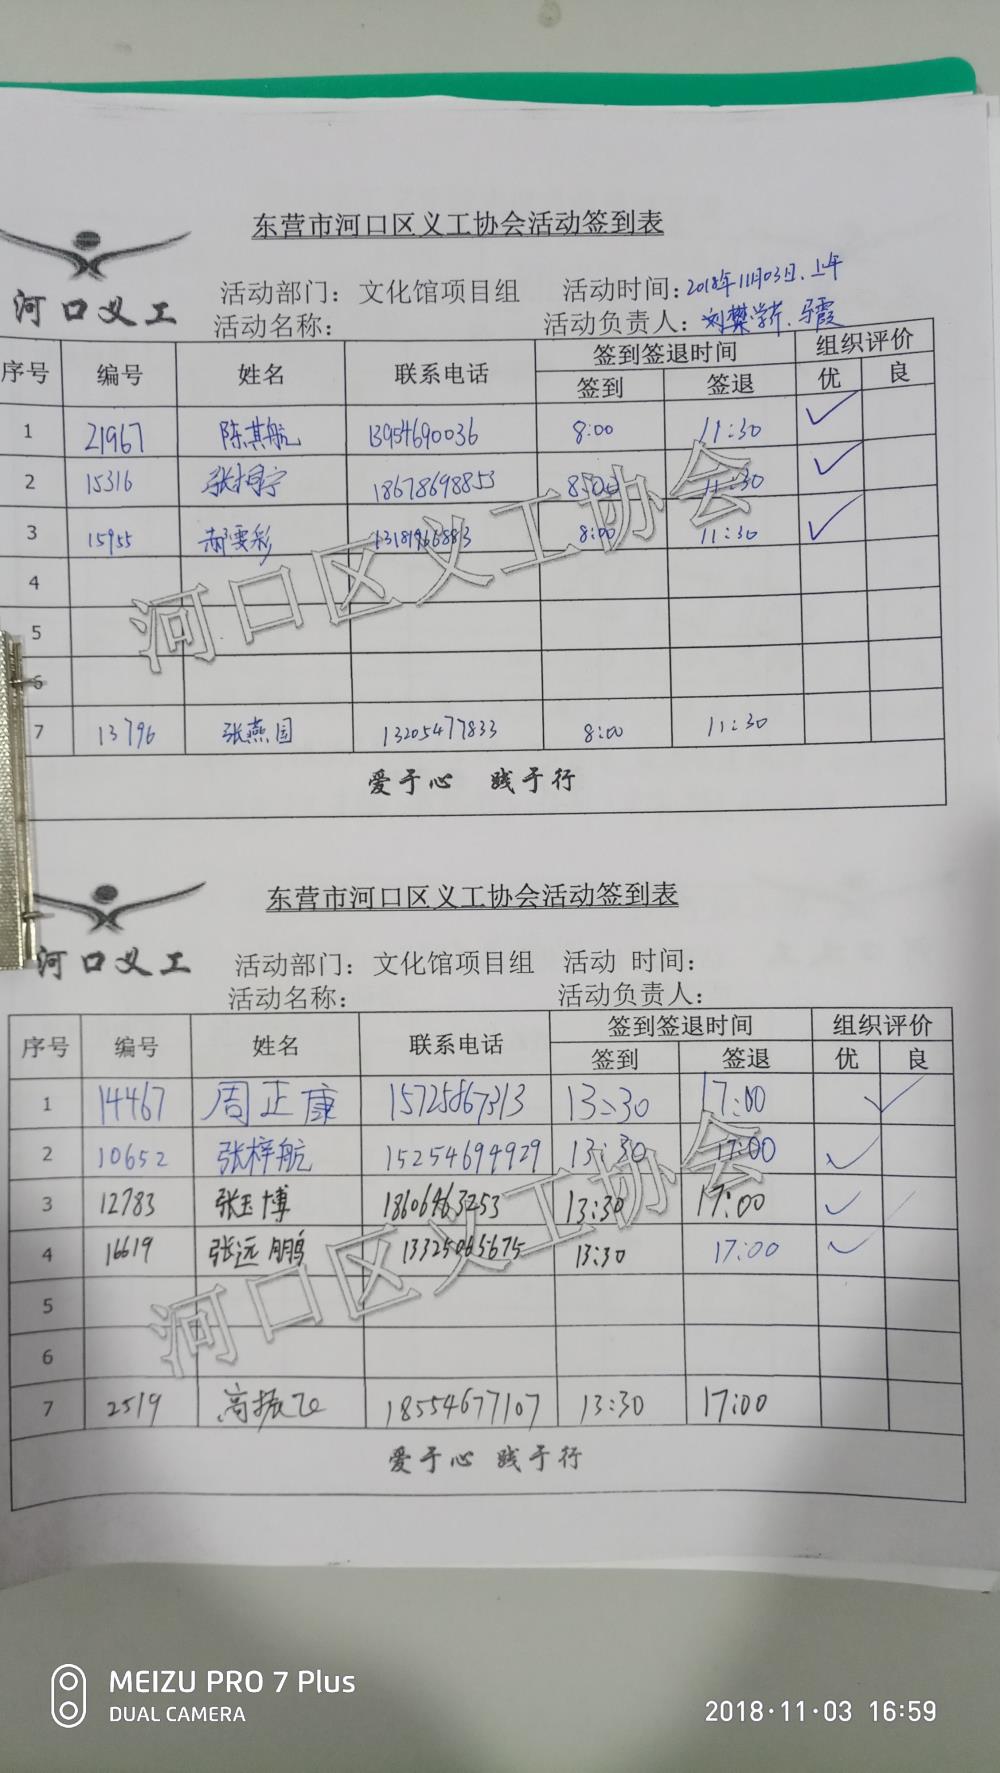 东营市河口区义工协会活动签到表
河口义工
活动部门：文化馆项目组 活动时间：2018年11月03日.上午
活动名称： 活动负责人：刘樊学芹、马霞
序号 编号 姓名 联系电话 签到签退时间 组织评价
签到 签退 优 良
1 21967 陈其航 13954690036 8:00 11:30 ✓
2 15316 张栩宁 18678698853 8:00 11:30 ✓
3 15955 郝雯彩 8:00 11:30 ✓
4
5
6
7 13796 张燕园 13205477833 8:00 11:30
爱于心 践于行
河口区义工协会
东营市河口区义工协会活动签到表
河口义工
活动部门：文化馆项目组 活动 时间：
活动名称： 活动负责人：
序号 编号 姓名 联系电话 签到签退时间 组织评价
签到 签退 优 良
1 14467 周正康 15725867313 13:30 17:00 ✓
2 10652 张梓航 15254694929 13:30 17:00 ✓
3 12783 张玉博 18606463253 13:30 17:00 ✓
4 16619 张远鹏 13325065675 13:30 17:00 ✓
5
6
7 2519 高振飞 18554677107 13:30 17:00
爱于心 践于行
河口区义工协会
MEIZU PRO 7 Plus
DUAL CAMERA
2018·11·03 16:59